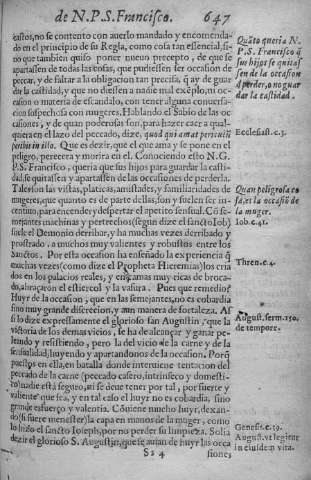 de N.P.S. Francisco. 647
castos, no se contento con auerlo mandado y encomenda-
do en el principio de su Regla, como cosa tan essencial, si-
no que tambien quiso poner nueuo precepto, de que se
apartassen de todas las cosas, que pudiessen ser occasion de
peccar, y de faltar a la obligacion tan precisa, q̃ ay de guar
dar la castidad, y que no diessen a nadie mal exẽplo, ni oc-
casion o materia de escandalo, con tener alguna conuersa-
cion sospechosa con mugeres. Hablando el Sabio de las oc
casiones, y de quan poderosas son, para hazer caer a qual-
quiera en el lazo del peccado, dize, quod qui amat periculũ
peribit in illo. Que es dezir, que el que ama y se pone en el
peligro, perecera y morira en el. Conociendo esto N.G.
P.S. Francisco, queria que sus hijos para guardar la casti-
dad, se quitassen y apartassen de las occasiones de perderla.
Tales son las vistas, platicas, amistades, y familiaridades de
mugeres, que quanto es de parte dellas, son y suelen ser in-
centiuo, para encender y despertar el apetito sensual. Cõ se-
mejantes machinas y pertrechos (segun dize el sancto Iob)
suele el Demonio derribar, y ha muchas vezes derribado y
prostrado, a muchos muy valientes y robustos entre los
sanctos. Por esta occasion ha enseñado la experiencia q̃
muchas vezes (como dize el Propheta Hieremias) los cria
dos en los palacios reales, y en camas muy ricas de broca-
do, abraçaron el estiercol y la vasura. Pues que remedio?
Huyr de la occasion, que en las semejantes, no es cobardia
sino muy grande discrecion, y aun manera de fortaleza. As
si lo dize expressamente el glorioso san Augustin, que la
victoria de los demas vicios, se ha de alcançar y ganar pe-
leando y resistiendo, pero la del vicio de la carne y de la
sensualidad, huyendo y apartandonos de la occasion. Porq̃
puestos en ella, en batalla donde interuiene tentacion del
peccado de la carne (peccado casero, intrinseco y domesti-
co) nadie està seguro, ni se deue tener por tal, por fuerte y
valiente que sea, y en tal caso el huyr no es cobardia, sino
grande esfuerço y valentia. Cõuiene mucho huyr, dexan-
do (si fuere menester) la capa en manos de la muger, como
lo hizo el sancto Ioseph, por no perder su limpieza. Solia
dezir el glorioso S. Augustin, que se auian de huyr las occa
Ss 4 siones
Quãto queria N.
P.S. Francisco q̃
sus hijos se quitas
sen de la occasion
d perder, o no guar
dar la castidad.
Ecclesiast. c.3.
Quan peligrosa co
sa, es la occasiõ de
la muger.
Iob. c.41.
Thren. c.4.
August. serm. 250.
de tempore.
Genesis. c.39.
August. vt legitur
in eiusdem vita.